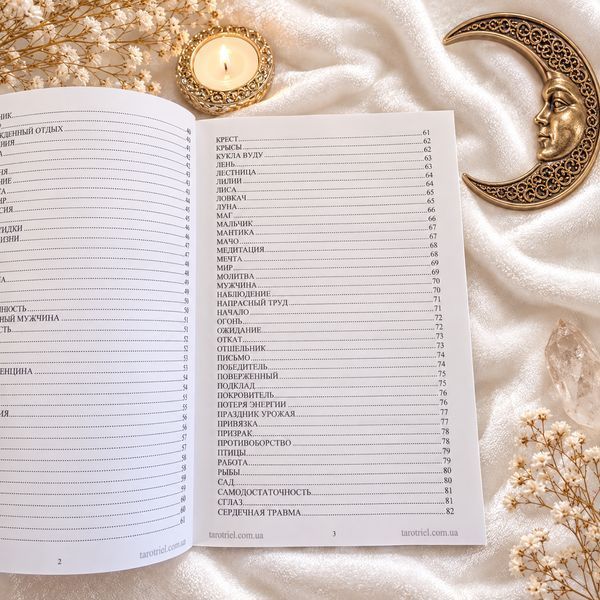 НИК
ЖДЕННЫЙ ОТДЫХ
ИДКИ
ИЗНИ
ННОСТЬ
НЫЙ МУЖЧИНА
ЕНЩИНА
2
tarotriel.com.ua
КРЕСТ 61
КРЫСЫ 62
КУКЛА ВУДУ 62
ЛЕНЬ 63
ЛЕСТНИЦА 63
ЛИЛИИ 64
ЛИСА 64
ЛОВКАЧ 65
ЛУНА 65
МАГ 66
МАЛЬЧИК 66
МАНТИКА 67
МАЧО 67
МЕДИТАЦИЯ 68
МЕЧТА 68
МИР 69
МОЛИТВА 69
МУЖЧИНА 70
НАБЛЮДЕНИЕ 70
НАПРАСНЫЙ ТРУД 71
НАЧАЛО 71
ОГОНЬ 72
ОЖИДАНИЕ 72
ОТКАТ 73
ОТШЕЛЬНИК 73
ПИСЬМО 74
ПОБЕДИТЕЛЬ 74
ПОВЕРЖЕННЫЙ 75
ПОДКЛАД 75
ПОКРОВИТЕЛЬ 76
ПОТЕРЯ ЭНЕРГИИ 76
ПРАЗДНИК УРОЖАЯ 77
ПРИВЯЗКА 77
ПРИЗРАК 78
ПРОТИВОБОРСТВО 78
ПТИЦЫ 79
РАБОТА 79
РЫБЫ 80
САД 80
САМОДОСТАТОЧНОСТЬ 81
СГЛАЗ 81
СЕРДЕЧНАЯ ТРАВМА 82
tarotriel.com.ua 3 tarotriel.com.ua